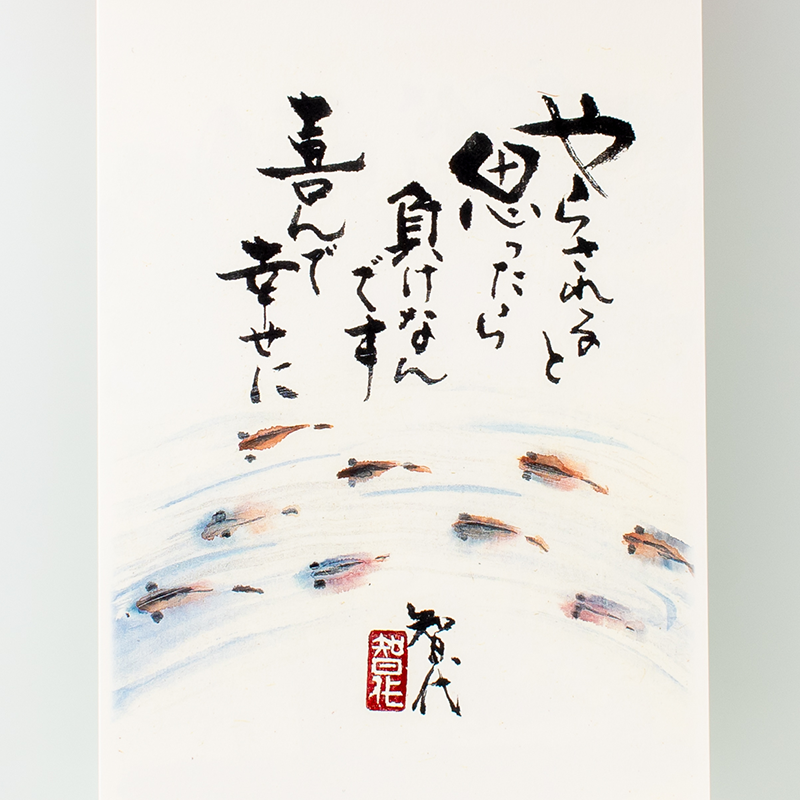 やらされると
思ったら
負けなん
です
喜んで
幸せに
智代
智代